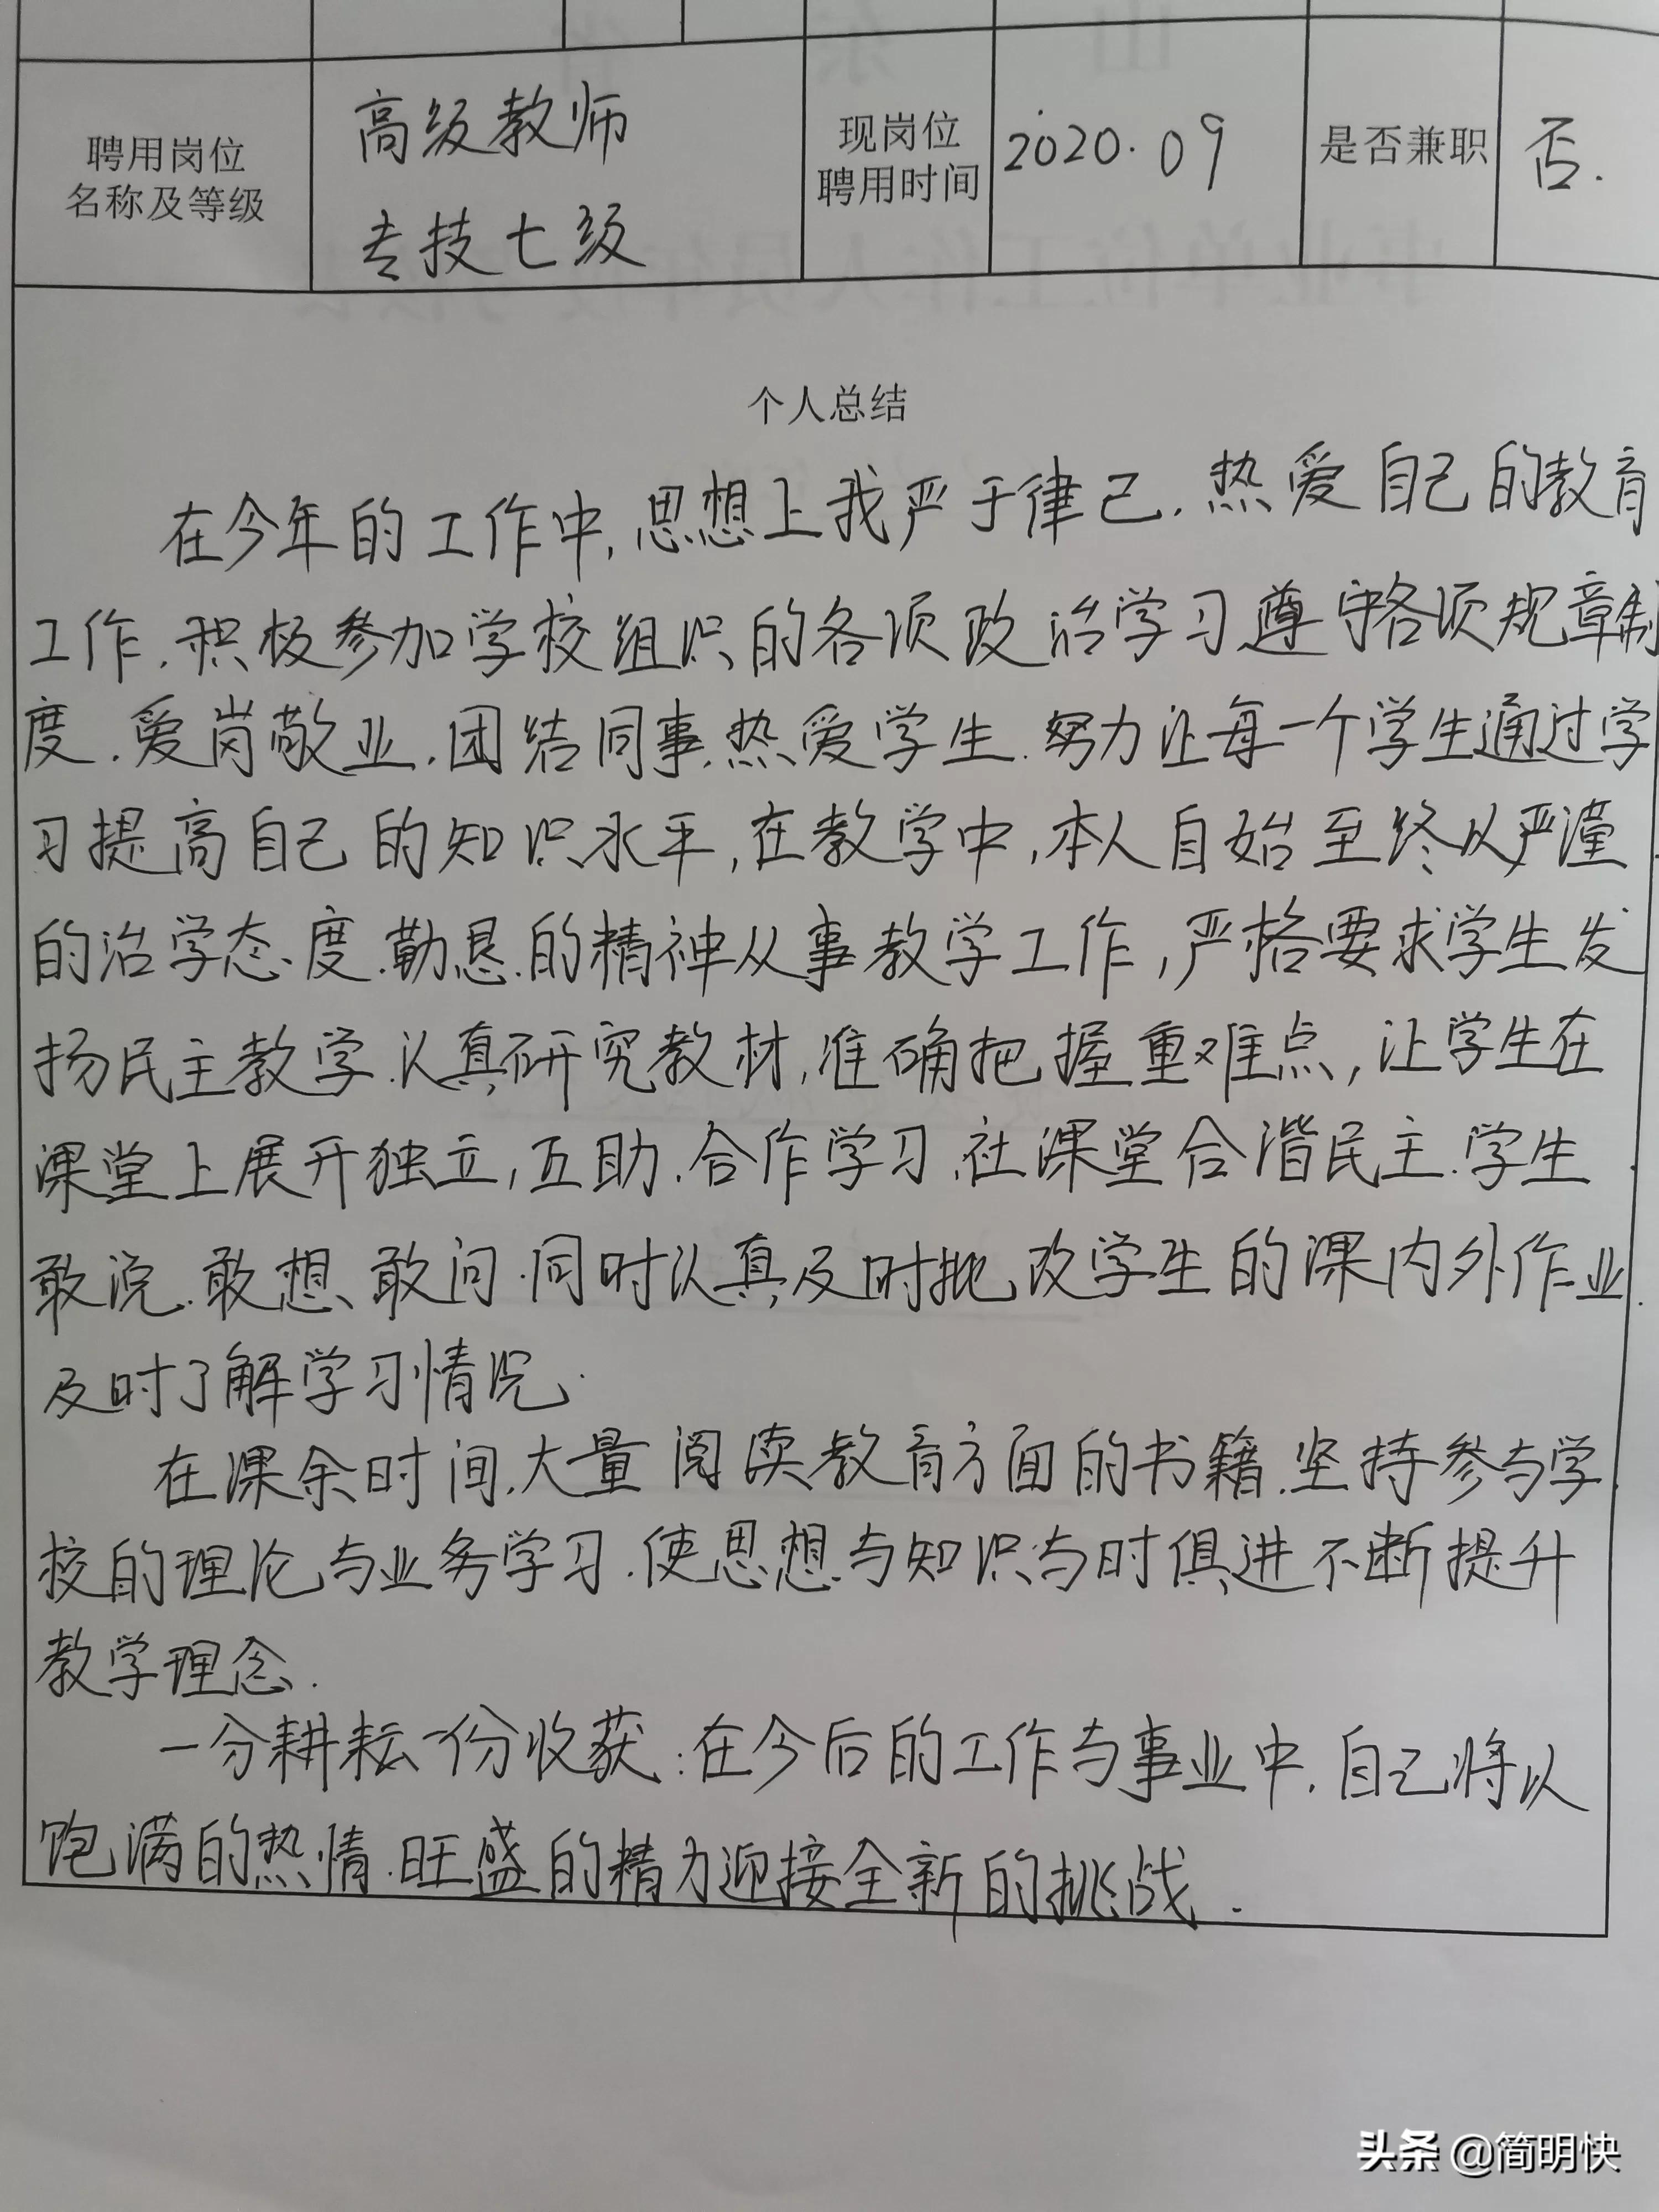 聘用岗位
名称及等级
高级教师
专技七级
现岗位
聘用时间
2020.09
是否兼职
否.
个人总结
在今年的工作中,思想上我严于律己.热爱自己的教育
工作.积极参加学校组织的各项政治学习遵守各项规章制
度.爱岗敬业.团结同事.热爱学生.努力让每一个学生通过学
习提高自己的知识水平,在教学中,本人自始至终以严谨
的治学态度.勤恳的精神从事教学工作,严格要求学生发
扬民主教学.认真研究教材,准确把握重难点,让学生在
课堂上展开独立,互助.合作学习.社课堂合谐民主.学生
敢说.敢想、敢问.同时认真及时批改学生的课内外作业.
及时了解学习情况.
在课余时间.大量阅读教育方面的书籍.坚持参与学
校的理论与业务学习.使思想与知识与时俱进不断提升
教学理念.
一分耕耘一份收获:在今后的工作与事业中.自己将以
饱满的热情.旺盛的精力迎接全新的挑战.
头条 @简明快